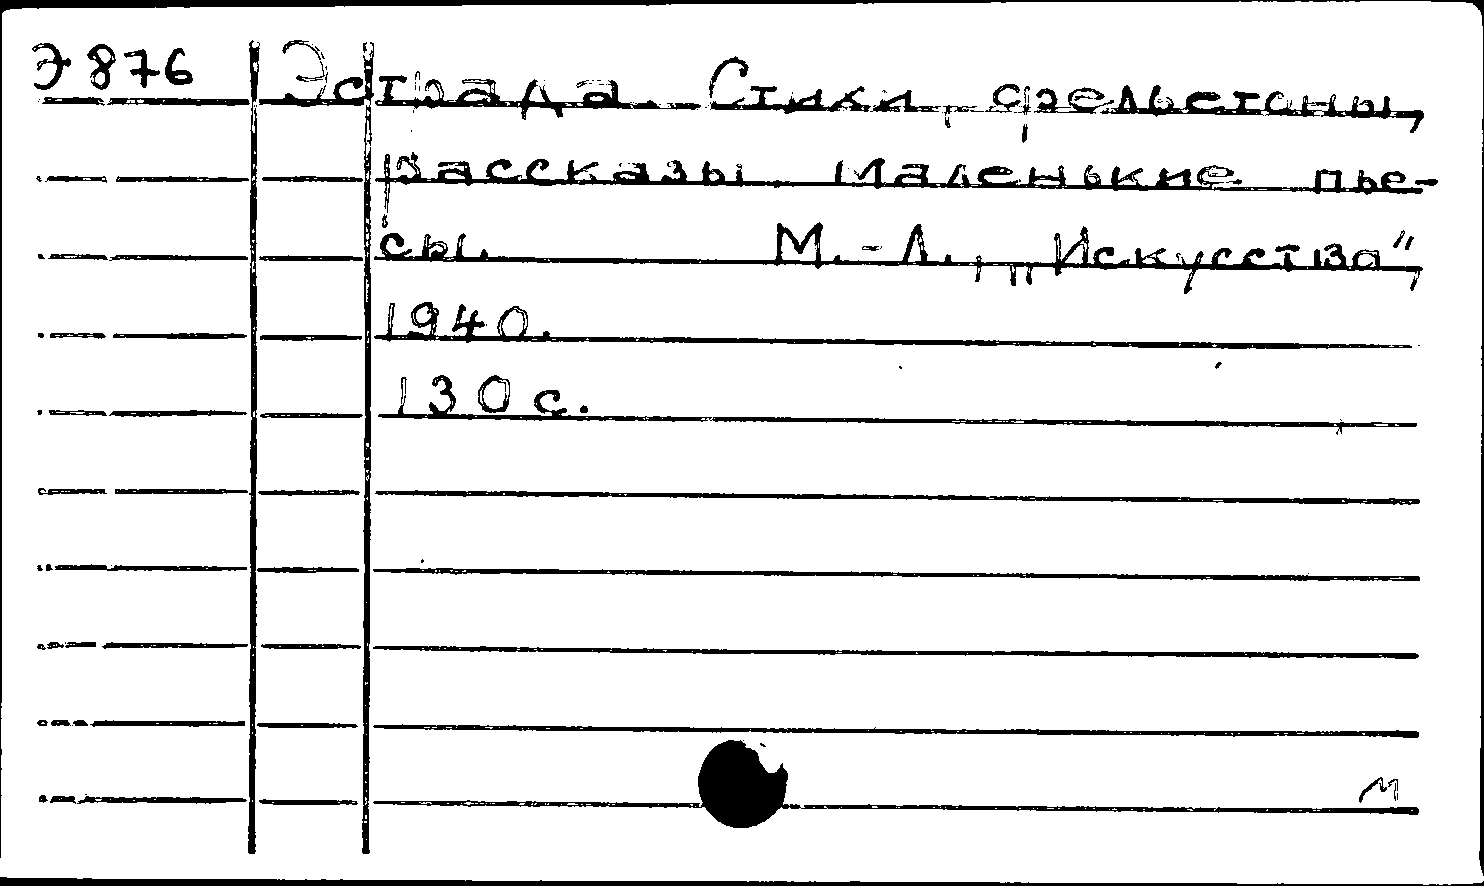 Э 876 Эстрада. Стихи, фельетоны,
рассказы. Маленькие пье-
сы. М.-Л., „Искусства",
1940.
130 с.
м